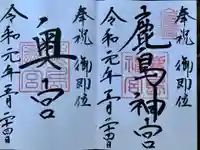 奉祝 御即位
鹿島神宮
令和元年五月一日
奉祝 御即位
奥宮
令和元年五月一日